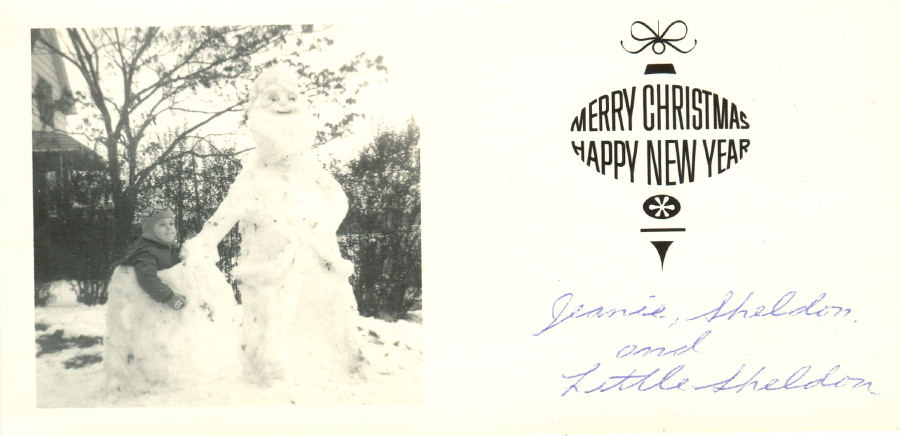 MERRY CHRISTMAS
HAPPY NEW YEAR
Jeanie, Sheldon,
and
Little Sheldon